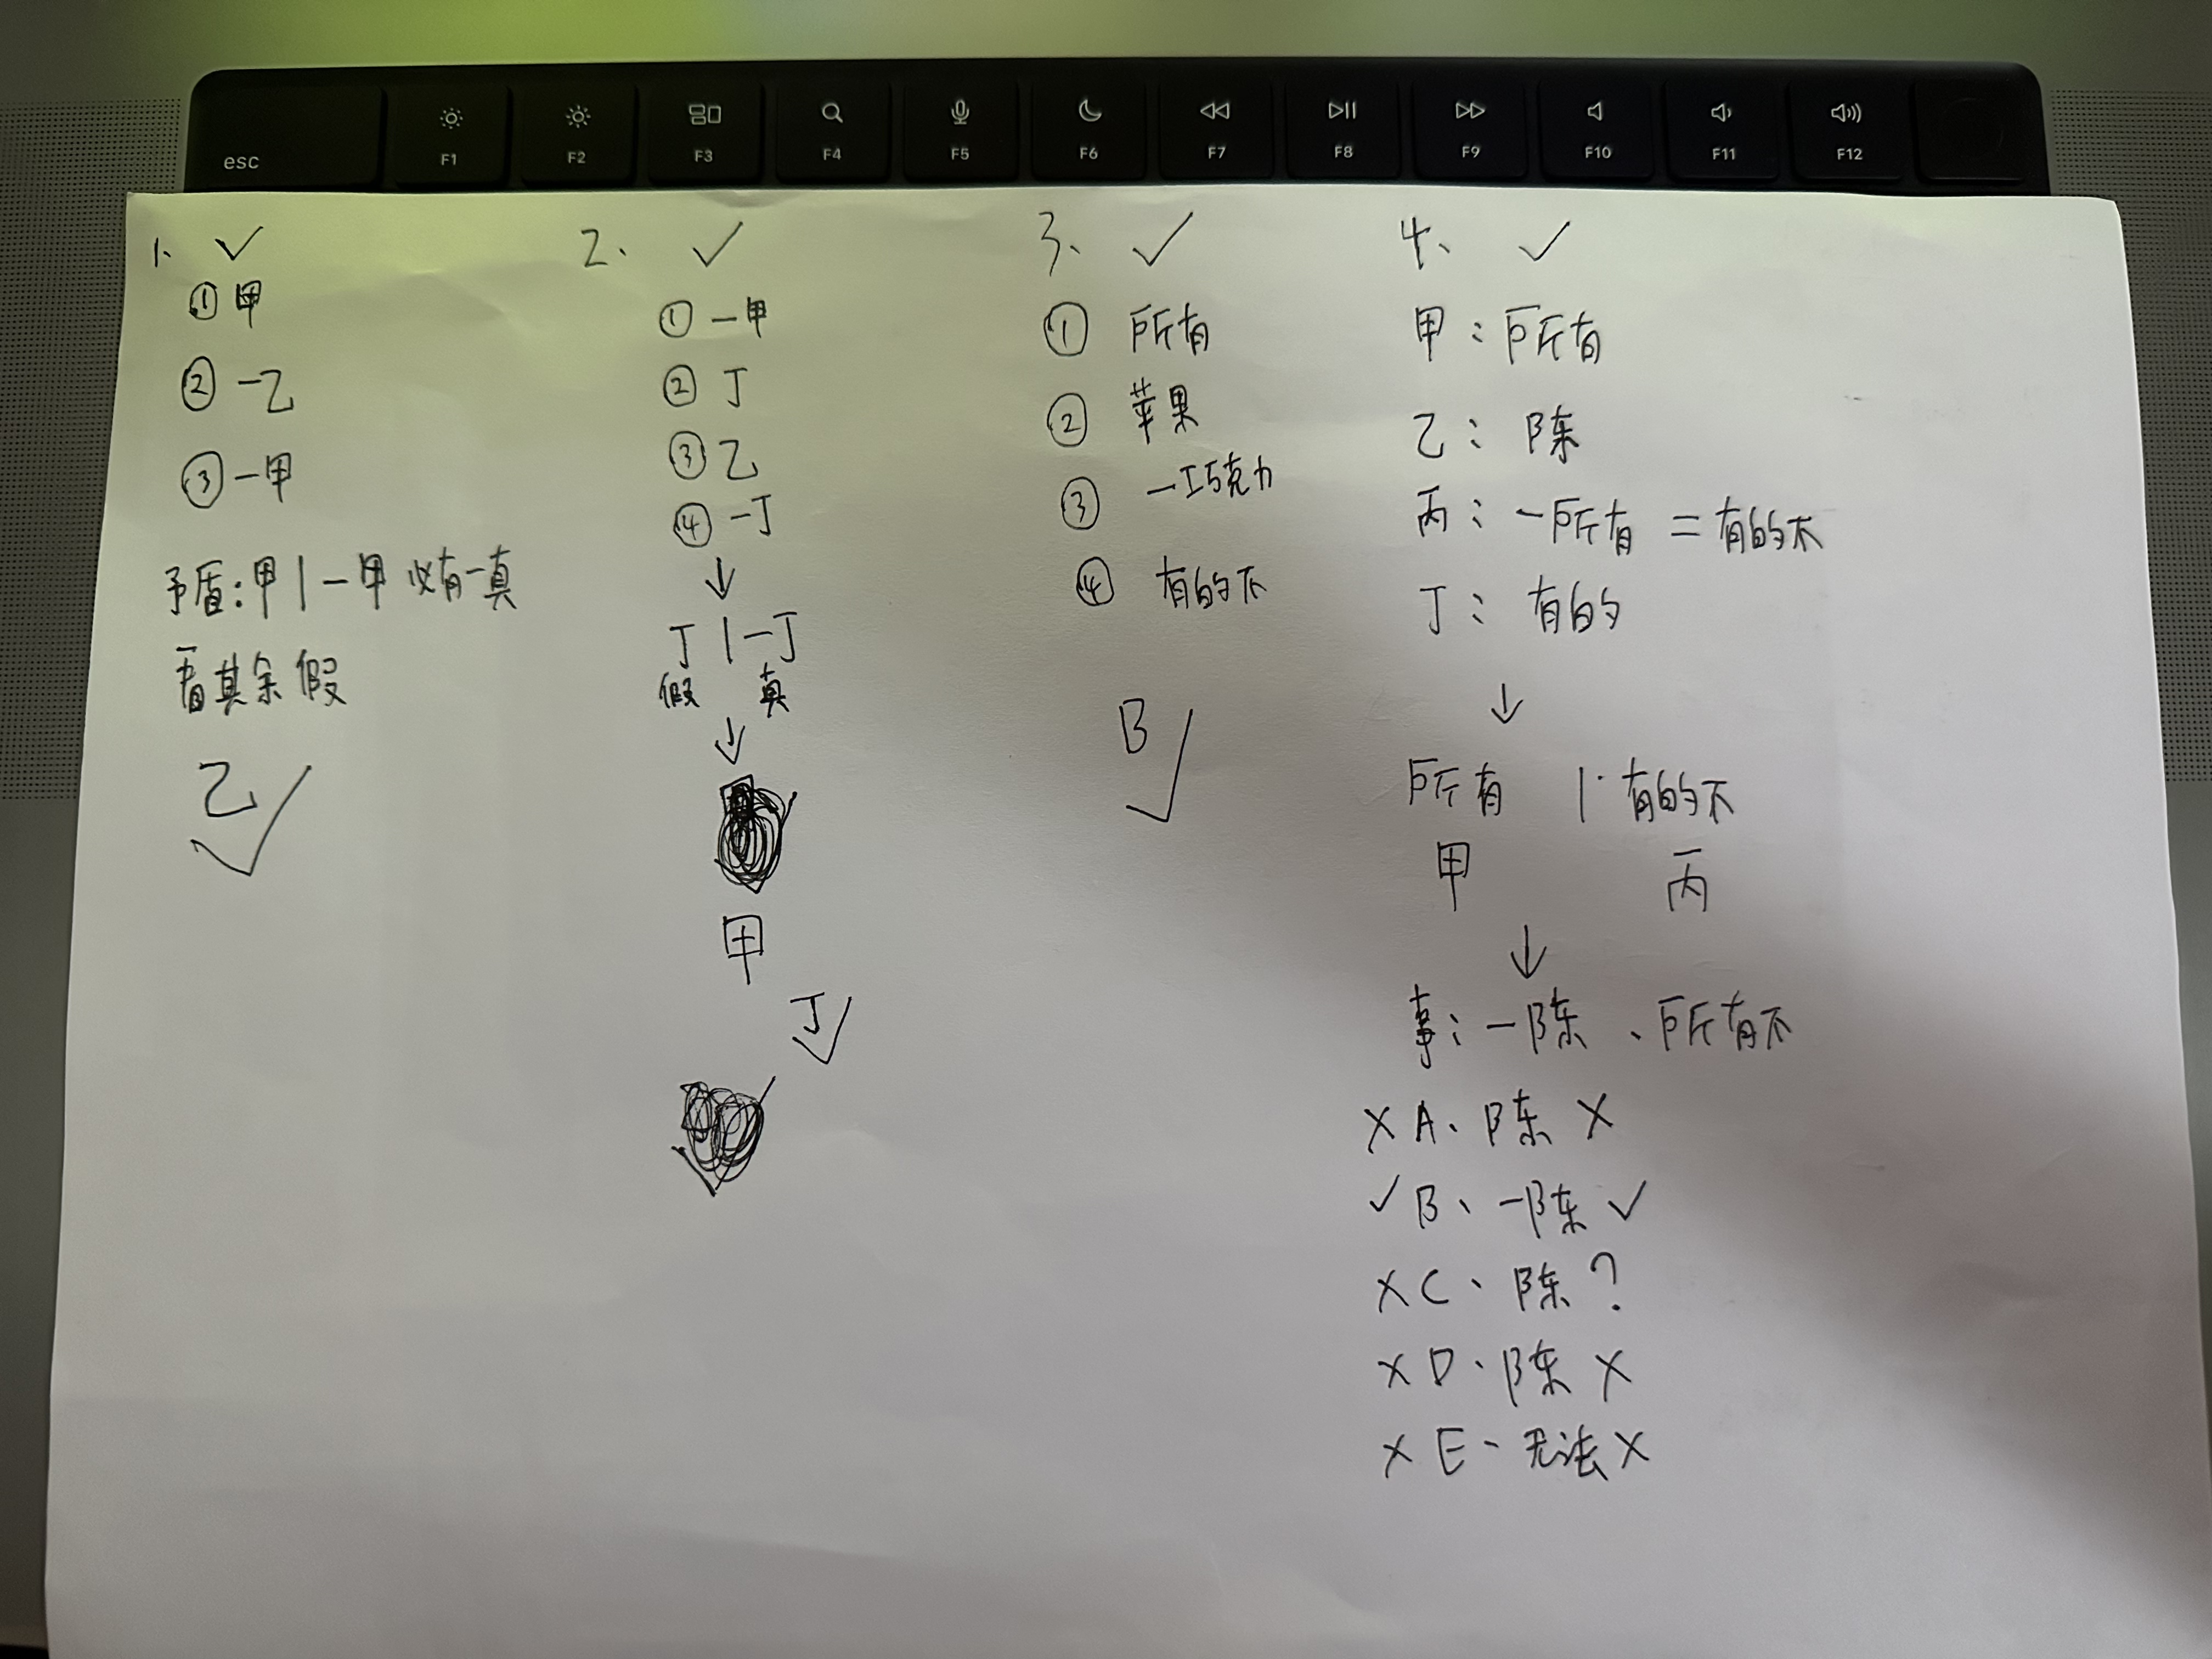 esc F1 F2 F3 F4 F5 F6 F7 F8 F9 F10 F11 F12
1、 ✓
① 甲
② ー乙
③ ー甲
矛盾:甲 | ー甲 必有一真
看其余假
乙 ✓
2、 ✓
① ー甲
② 丁
③ 乙
④ ー丁
↓
丁 | ー丁
假 真
↓
甲
丁 ✓
3、 ✓
① 所有
② 苹果
③ ー巧克力
④ 有的不
B ✓
4、 ✓
甲:所有
乙:陈
丙:ー所有 = 有的不
丁:有的
↓
所有 | 有的不
甲 丙
↓
事:ー陈、所有不
× A、陈 ×
✓ B、ー陈 ✓
× C、陈 ?
× D、陈 ×
× E、无法 ×